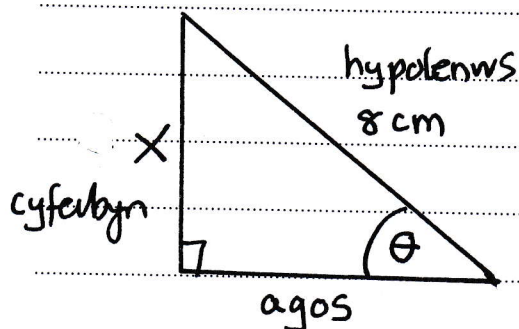 hypotenws
8 cm
X
cyferbyn
θ
agos